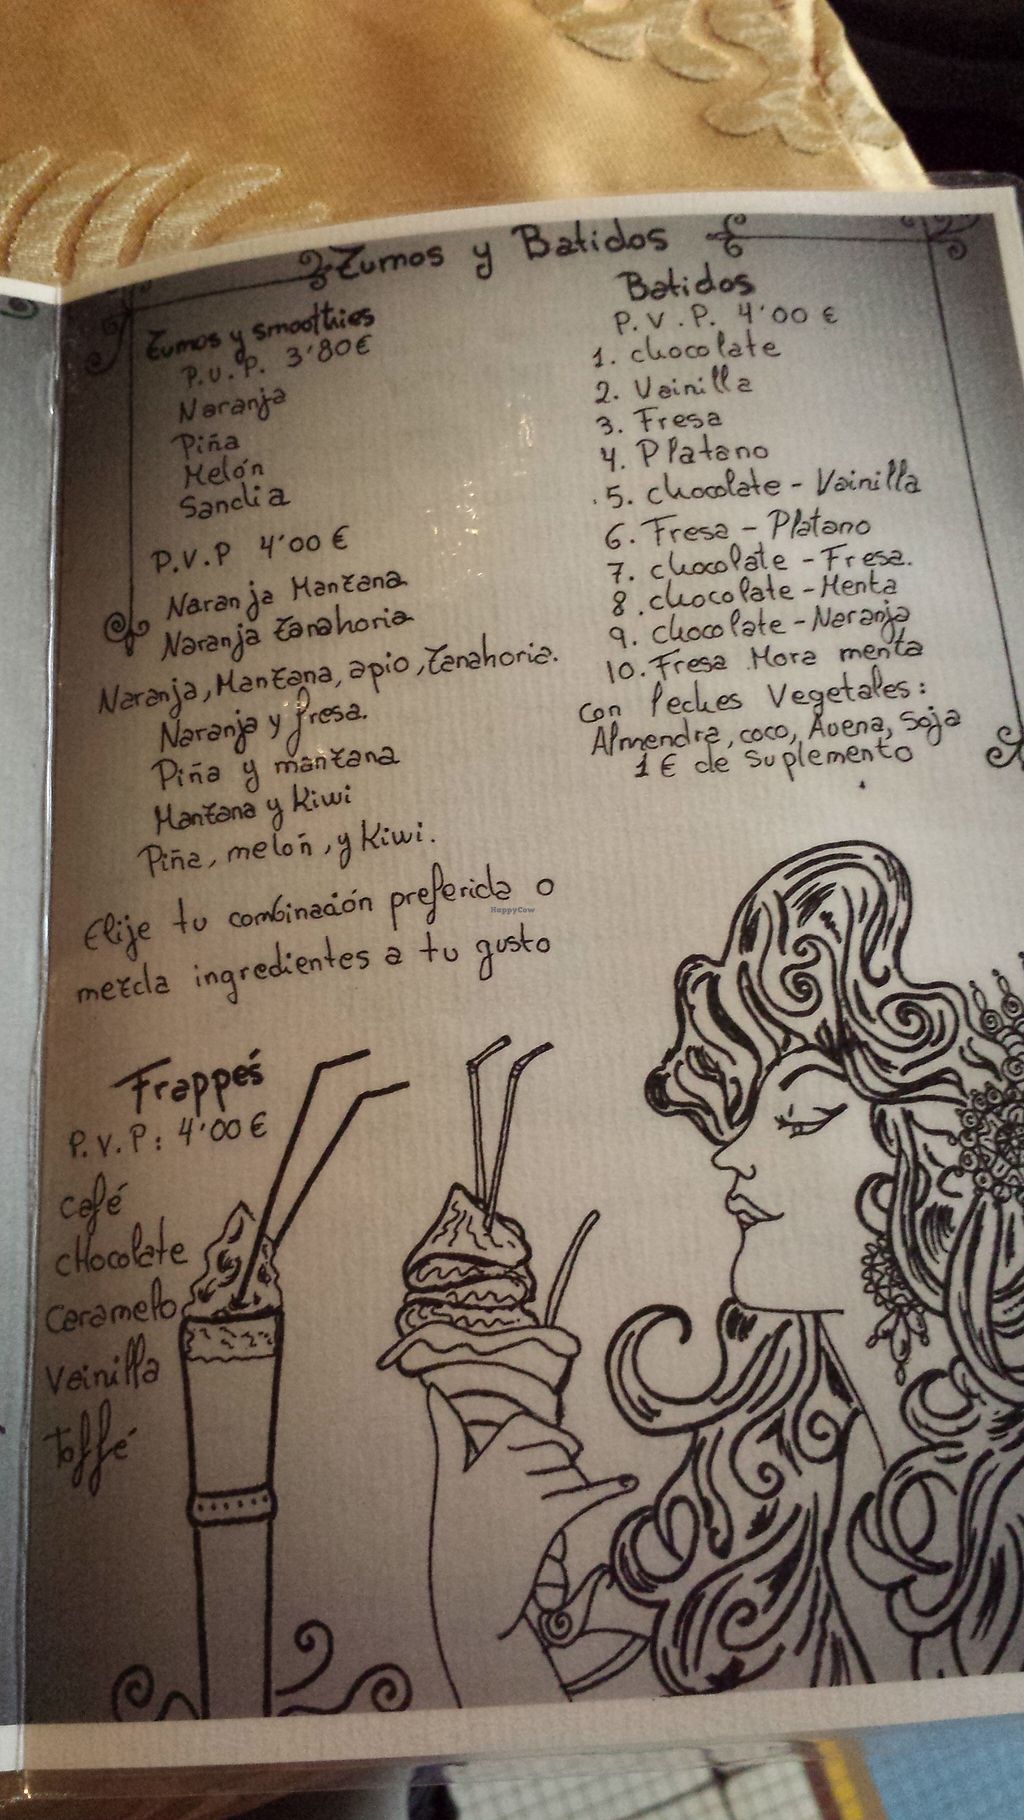 Zumos y Batidos
Zumos y smoothies
P.V.P. 3'80€
Naranja
Piña
Melón
Sandia
P.V.P 4'00 €
Naranja Manzana
Naranja Zanahoria
Naranja, Manzana, apio, Zanahoria.
Naranja y fresa.
Piña y manzana
Manzana y Kiwi
Piña, meloń, y Kiwi.
Elije tu combinación preferida o
mezcla ingredientes a tu gusto
Batidos
P.V.P. 4'00 €
1. chocolate
2. Vainilla
3. Fresa
4. Platano
5. chocolate - Vainilla
6. Fresa - Platano
7. chocolate - Fresa.
8. chocolate - Menta
9. chocolate - Naranja
10. Fresa Mora menta
con leches Vegetales:
Almendra, coco, Avena, Soja
1 € de Suplemento
Frappés
P.V.P: 4'00 €
café
cHocolate
caramelo
Vainilla
Toffé
HappyCow